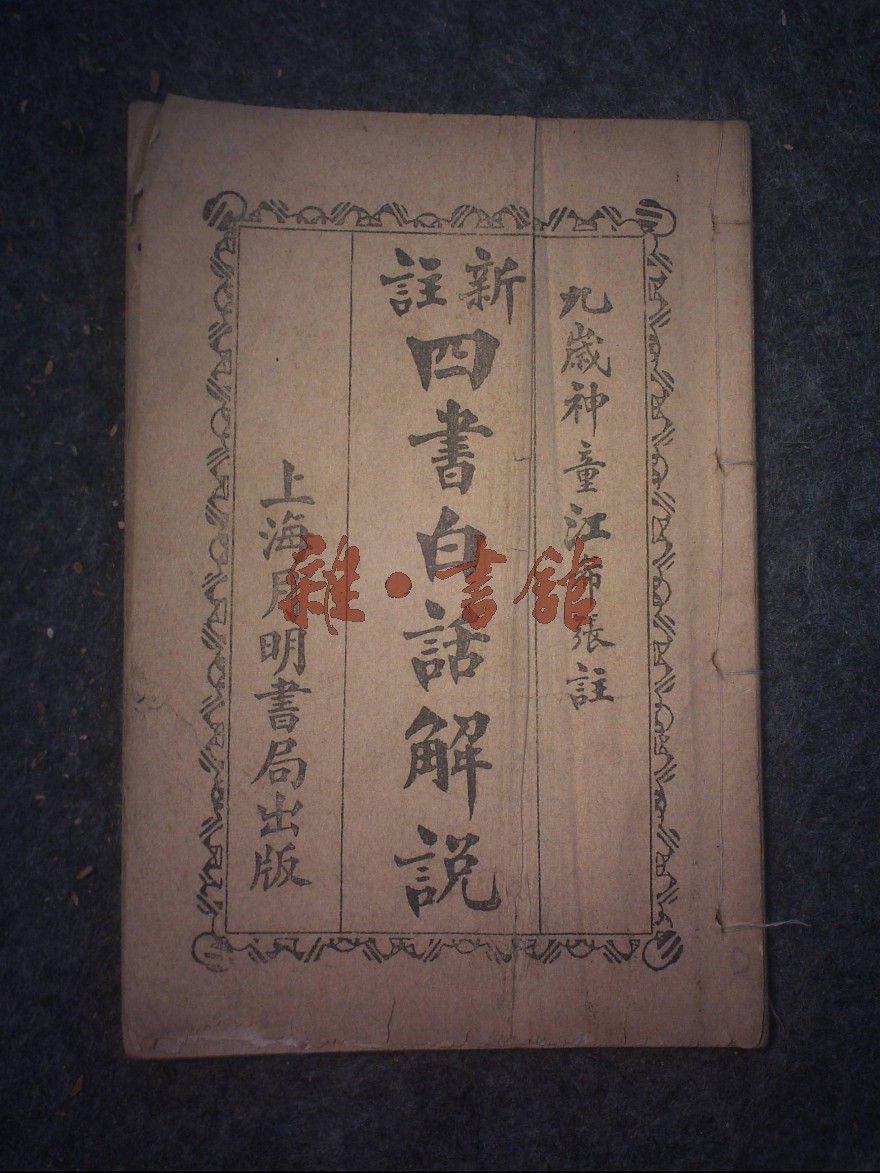 九歲神童江希張註
新註
四書白話解説
上海月明書局出版
雜·書館